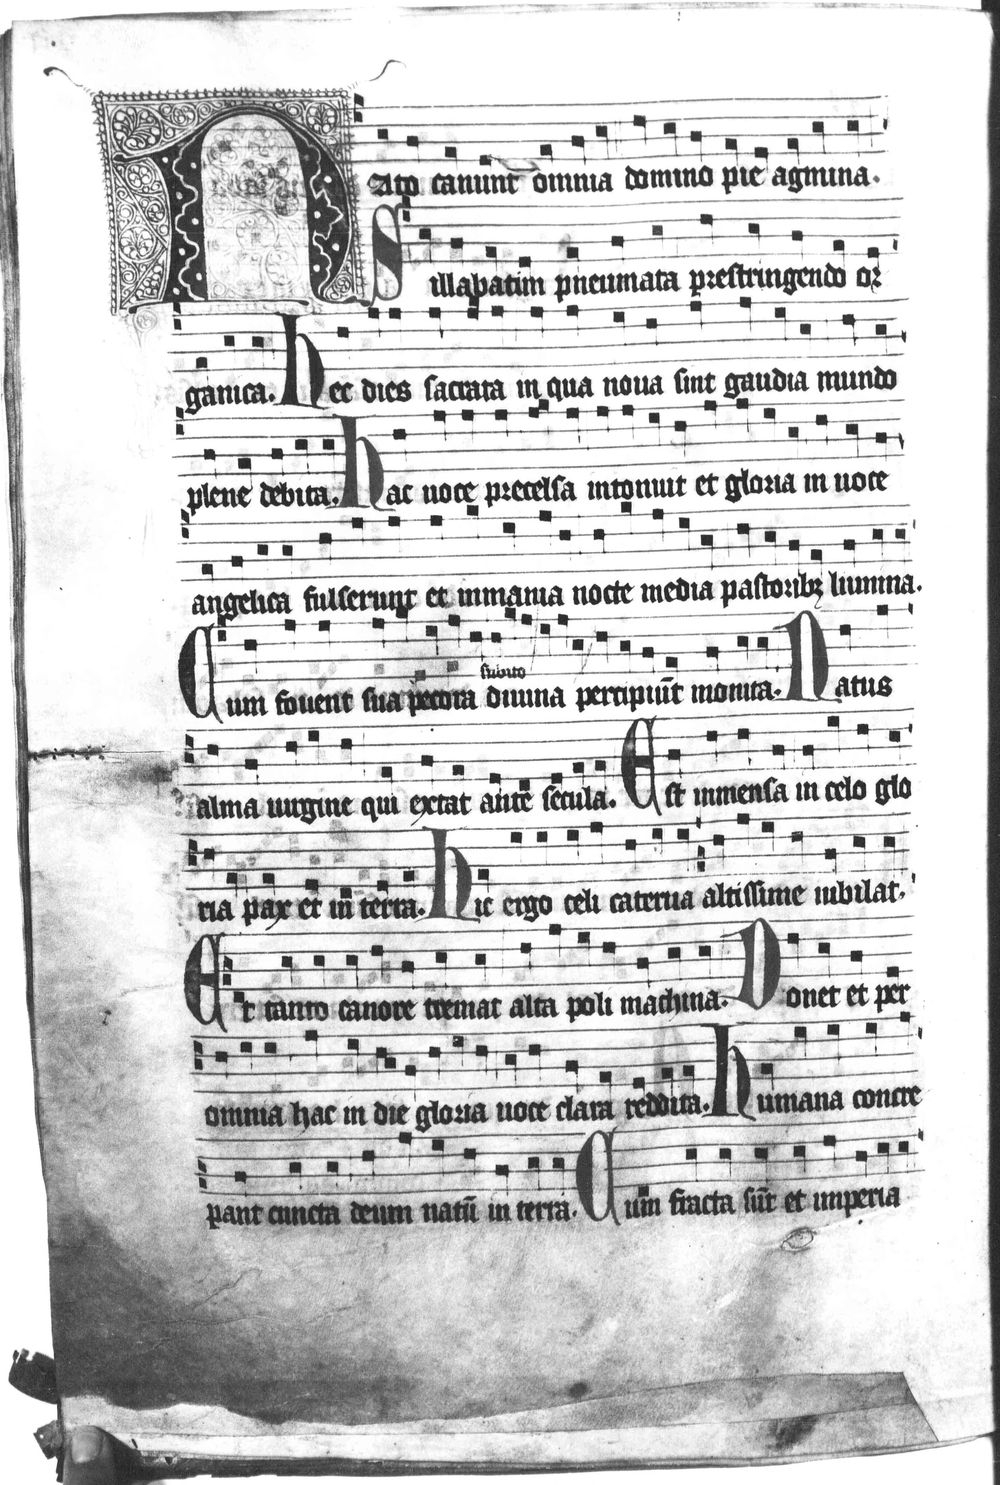 Nato canunt̄ omnia domino pie agmina.
Sillabatim pneumata prestringendo or
ganica. hec dies sacrata in qua noua sint gaudia mundo
plene debita. hac uoce precelsa intonuit et gloria in uoce
angelica fulserunt et inmania nocte media pastoribꝫ lumina.
subito
Cum fouent sua pecora diuina percipiūt monita. Natus
alma uirgine qui extat ante secula. Est inmensa in celo glo
ria pax et in̄ terra. hic ergo celi caterua altissime iubilat.
Et tanto canore tremat alta poli machina. Sonet et per
omnia hac in die gloria uoce clara reddita. humana concre
pant cuncta deum natū in terra. Cum fracta sūt et imperia